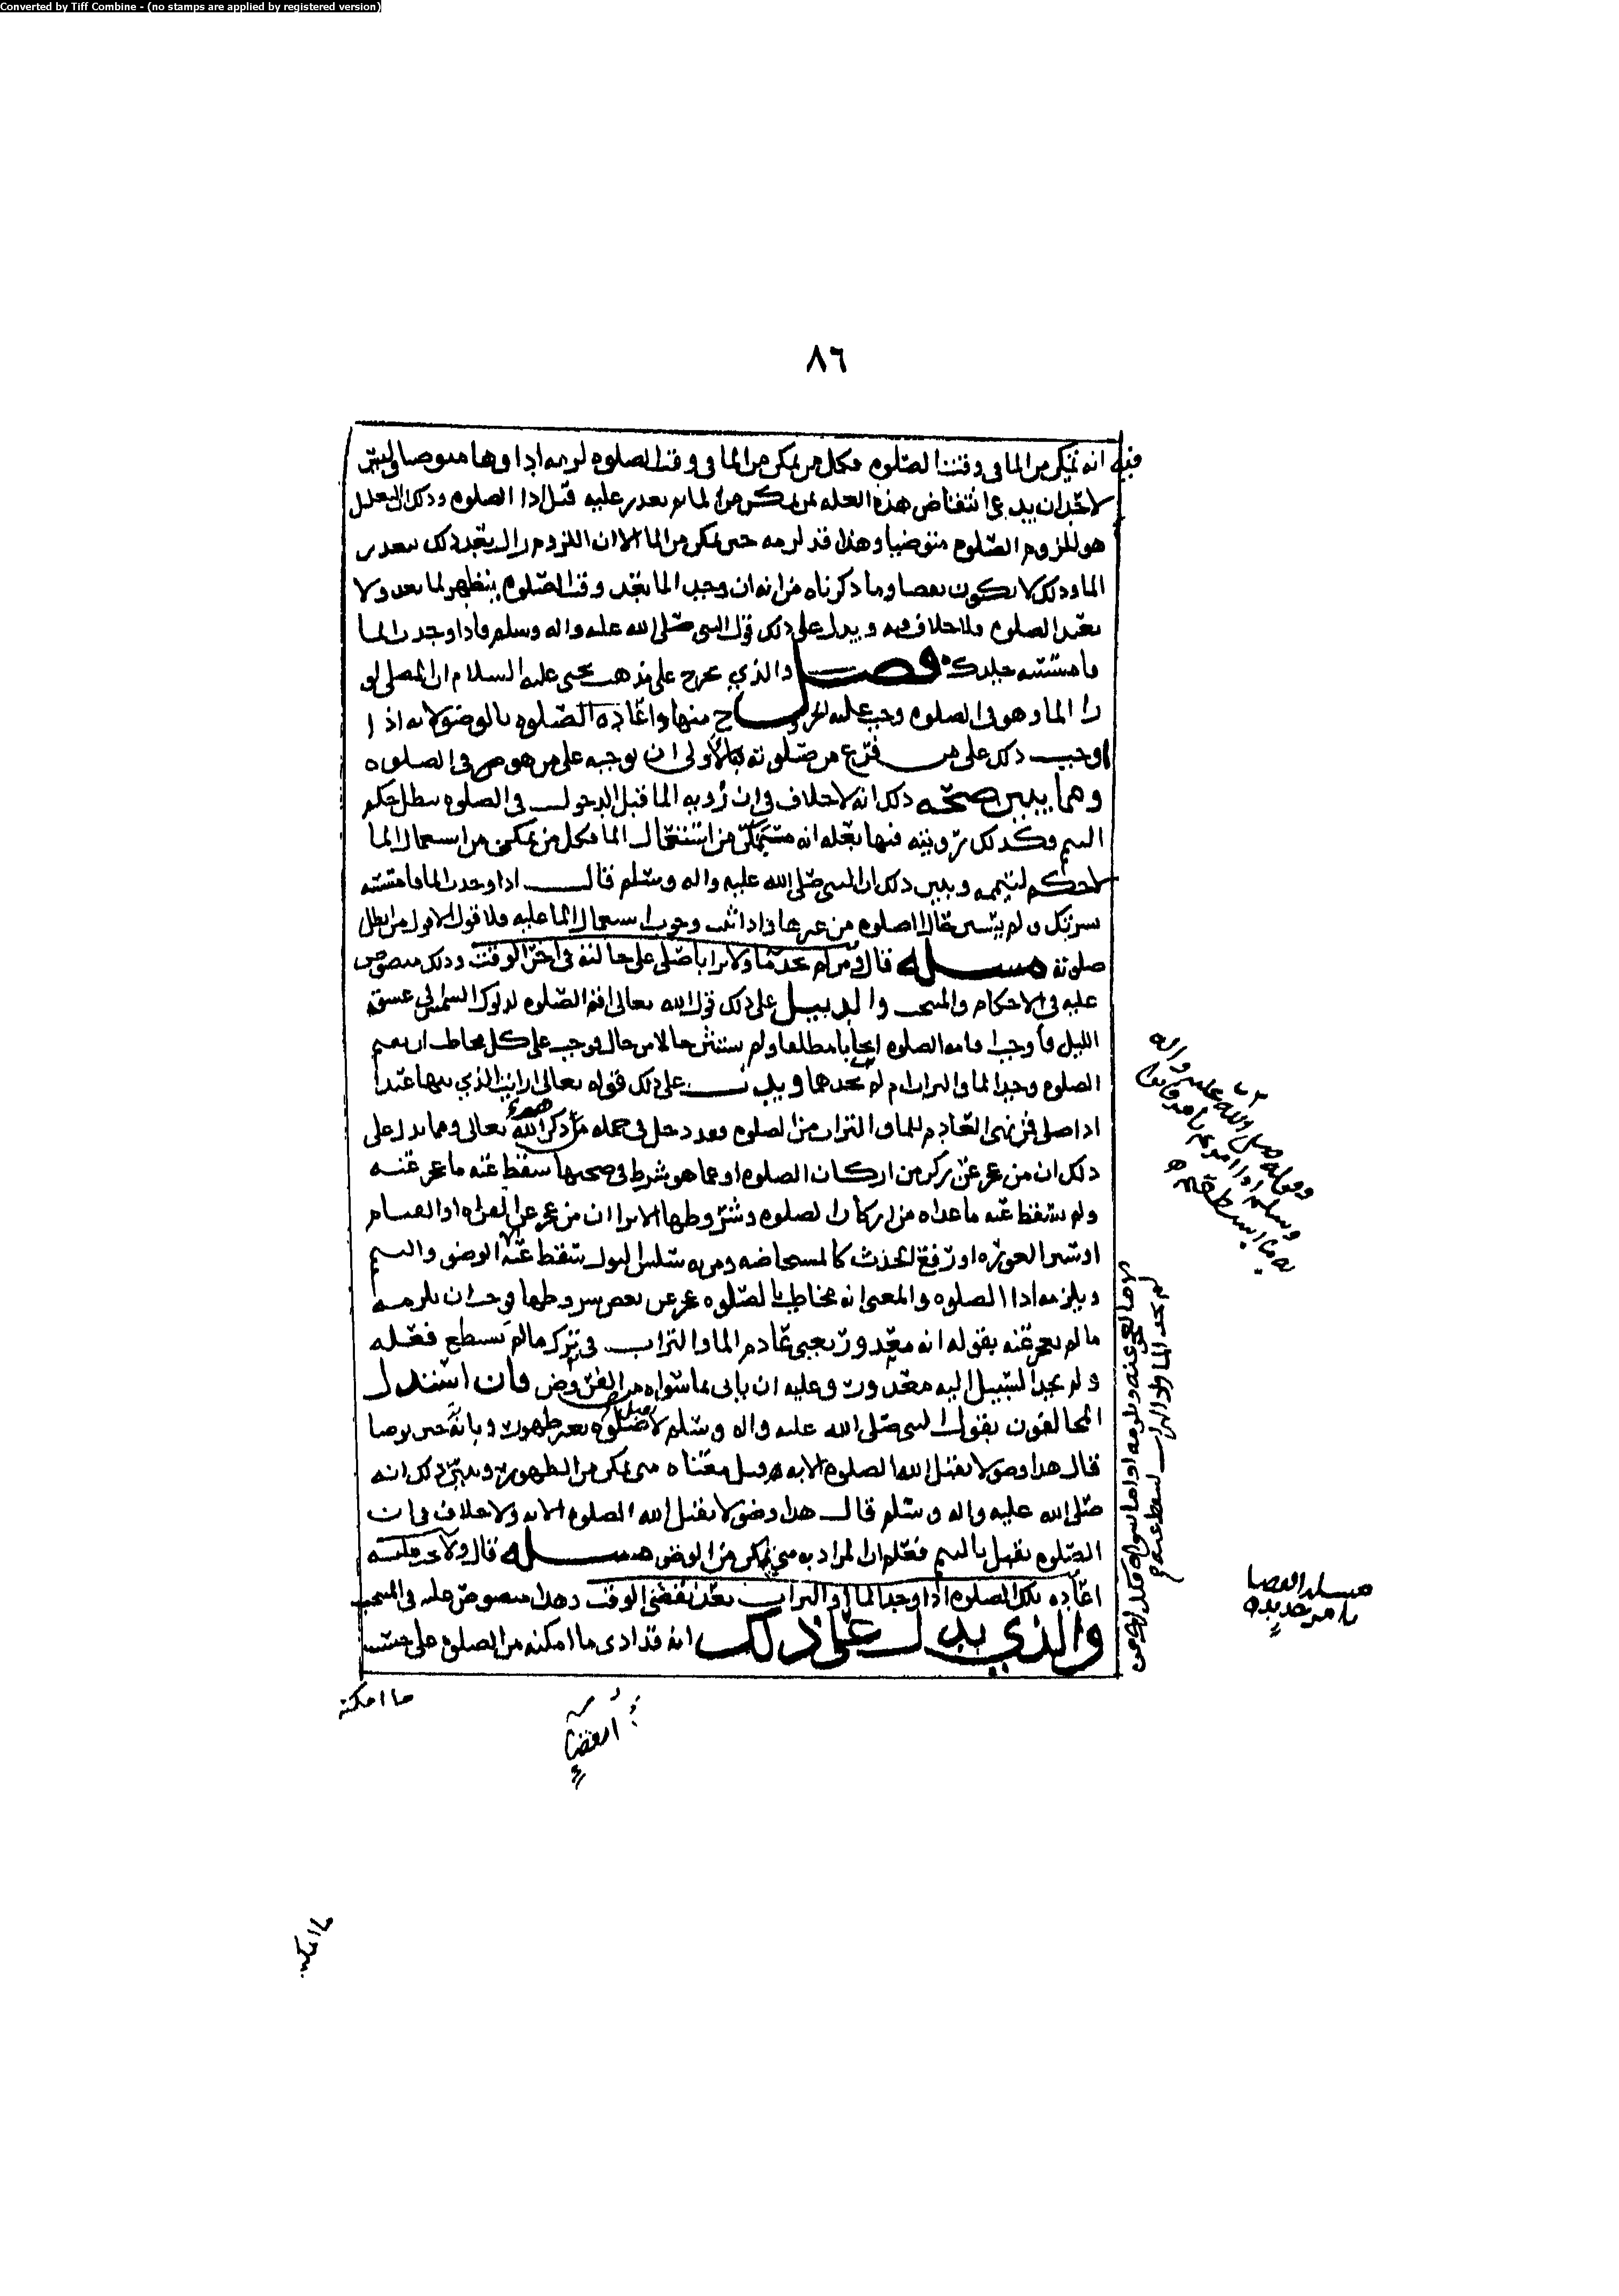 Converted by Tiff Combine - (no stamps are applied by registered version)
٨٦
فيه انه تمكن من الما في وقت الصلوه فكل من تمكن من الما في وقت الصلوه لزمه اداوها متوضيا وليس
لاحد ان يدعي انتقاض هذه العله بمن تمكن من الما ثم تعذر عليه قبل ادا الصلوه وذلك ان التعليل
هو للزوم الصلوه متوضيا وهذا قد لزمه حين تمكن من الما الا ان اللزوم زال بعد ذلك بتعذر
الما وذلك لا يكون نقضا وما ذكرناه من انه ان وجد الما بعد وقت الصلوه يتطهر لما بعد ولا
يعيد الصلوه فلا خلاف فيه ويدل على ذلك قول النبي صلى الله عليه واله وسلم فاذا وجدت الما
فامسسه جلدك فصل والذي يخرج على مذهب يحيى عليه السلام ان المصلي لو
را الما وهو في الصلوه وجب عليه الخروج منها واعادة الصلوه بالوضو لانه اذا
اوجب ذلك على من فرغ من صلوته فبالاولى ان يوجبه على من هو في الصلوه
ومما يبين صحة ذلك انه لا خلاف في ان رويه الما قبل الدخول في الصلوه يبطل حكم
التيمم وكذلك رويته فيها بعلة انه متمكن من استعمال الما فكل من تمكن من استعمال الما
لا حكم لتيممه ويبين ذلك ان النبي صلى الله عليه واله وسلم قال اذا وجدت الما فامسسه
بشرتك ولم يستثن حال الصلوه من غيرها فاذا ثبت وجوب استعمال الما عليه فلا قول الا قول من ابطل
صلوته مسله قال ومن لم يجد ما ولا ترابا صلى على حالته في اخر الوقت وذلك منصوص
عليه في الاحكام والمنتخب والدليل على ذلك قول الله تعالى اقم الصلوه لدلوك الشمس الى غسق
الليل فاوجب اقامه الصلوه ايجابا مطلقا ولم يستثن حالا من حال فوجب على كل مخاطب ان يقيم
الصلوه وجد الما والتراب ام لم يجدهما ويدل على ذلك قوله تعالى ارايت الذي ينهى عبدا
اذا صلى فمن نهى العادم للما والتراب من الصلوه فقد دخل في جمله من ذكره الله تعالى ومما يدل على
ذلك ان من عجز عن ركن من اركان الصلوه او عما هو شرط في صحتها سقط عنه ما عجز عنه
ولم يسقط عنه ما عداه من اركان الصلوه وشروطها الا ترا ان من عجز عن القراه او القيام
او ستر العوره او رفع الحدث كالمستحاضه ومن به سلس البول سقط عنه الوضو والتيمم
ويلزمه ادا الصلوه والمعنى انه مخاطب بالصلوه عجز عن بعض شروطها فوجب ان يلزمه
ما لم يعجز عنه بقوله انه معذور يعني عادم الما والتراب في ترك ما لم يستطع فعله
ولم يجد السبيل اليه معذور وعليه ان ياتي بما سواه من الفروض فان استدل
المخالفون بقول النبي صلى الله عليه واله وسلم لا صلوه بغير طهور وبانه حين توضا
قال هذا وضو لا يقبل الله الصلوه الا به قيل معناه متى تمكن من الطهور ويبين ذلك انه
صلى الله عليه واله وسلم قال هذا وضو لا يقبل الله الصلوه الا به ولا خلاف في ان
الصلوه تقبل بالتيمم فعلم ان المراد به متى تمكن من الوضو مسله قال ولا يجب عليه
اعادة تلك الصلوه اذا وجد الما او التراب بعد تقضي الوقت وهذا منصوص عليه في المنتخب
والذي يدل على ذلك انه قد ادى ما امكنه من الصلوه على حسب
ما امكنه
وقوله صلى الله عليه واله
وسلم اذا امرتم بامر فاتوا
به ما استطعتم
لم يجد الما ولا التراب سقط عنه
مسله القضا
بامر جديد
القضا
ما امكنه